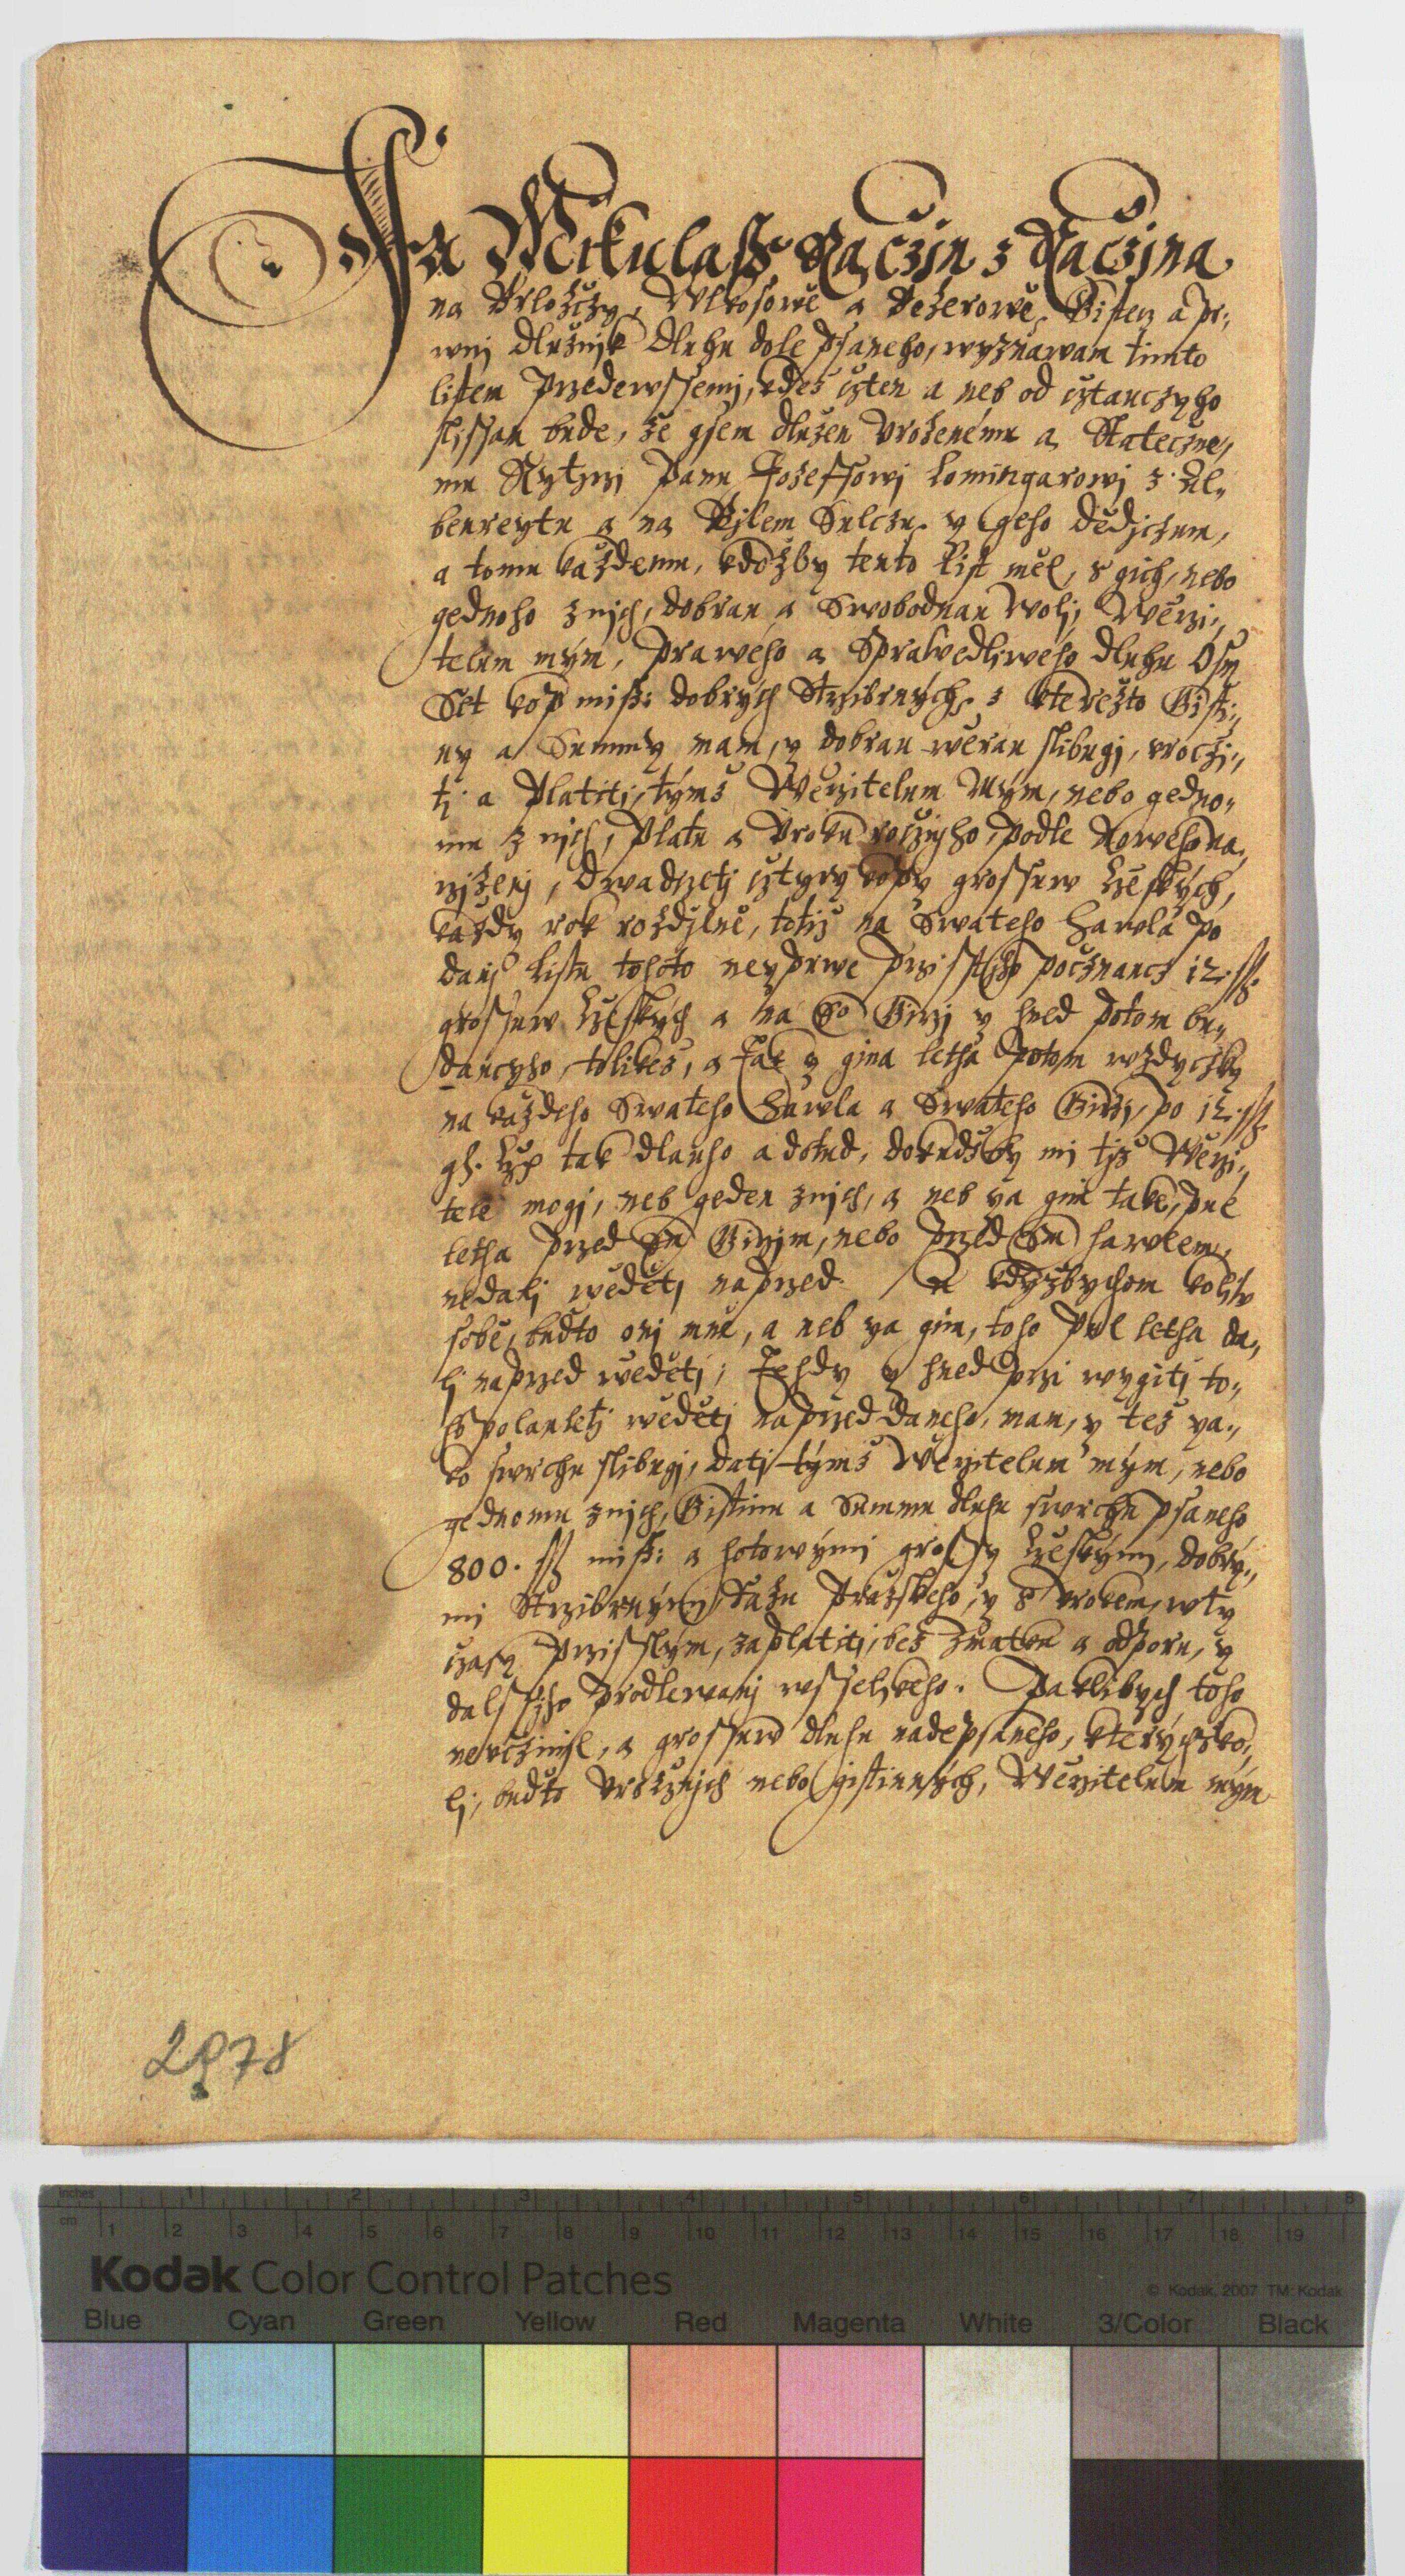 Ja Mikulass Raczin z Raczina
na Wrložczy, Wlkosowě a Dožerowě, Gisten a pr„
wnj Dlužnjk Dluhu dole psaneho, wyznawam timto
listem przedewssemj, kdež czten a neb od cztauczyho
slissan bude, že gsem dlužen Vroženému a Stateczne„
mu Rytzrzi Panu Jozeffowj Lomingarowj z Al„
benreytu a na Bjlem Sulczu. y geho Dědiczum,
a tomu každemu, kdožby tento List měl, s gich, nebo
gednoho znjch, dobrau a Swobodnau Wolj, Wěrzi„
telum mým, prawého a Sprawedliwého Dluhu Osm
Set kop miß: dobrých Strzibrných, z kterežto Gisti„
ny a Summy mam, y dobrau wěrau slibugj, vroczi„
tj a Platiti, týmž Werzitelum Mým, nebo gedno„
mu z njch, Platu a Vroku rocznjho, podle Noweho na„
rzjzenj, Dwadczetj cztyry kopy grossuw Czeských,
každy rok rozdjlně, totiž na Swateho Hawla po
danj listu tohoto neyprwe przisstjho počznaucz 12. ß
grossuw Czeských a na So Girzj y hned potom bu„
dauczyho, tolikež, a Tak y gina letha potom wzdyczky
na každeho Swateho Hawla a Swateho Girzj, po 12. ß
gß. Cžh tak dlauho a dotud, dokudžby mj tjž Wěrzi„
telé mogj, neb geden znjch, a neb ya gim také, pul
letha przed Sm Girzjm, nebo przed Sm Hawlem,
nedalj wědětj naprzed. A kdyžbychom koliw
sobě, buďto onj mně, a neb ya gim, toho pul letha da„
lj naprzed wědětj; Tehdy y hned przi wygitj to„
ho polauletj wědětj naprzed daneho, mam, y též ya„
ko swrchu slibugj, datj týmž Werzitelum mým, nebo
gednomu znjch, Gistinu a Summu dluhu swrchu psaneho
800. ß miß: a hotowýmj grossy Czeskými, dobrý„
mj Strzibrnýmj Razu Pražskeho, y s Vrokem, w ty
czasy przisslým, zaplatiti, bez zmatku a odporu, y
dalssjho prodlewanj wsselikeho. Paklibych toho
nevczinjl, a grossuw dluhu nadepsaneho, kterýchžko„
lj, buďto Vrocznjch nebo gistinných, Werzitelum mým
2978
Kodak Color Control Patches
© Kodak, 2007 TM: Kodak
Inches 1 2 3 4 5 6 7 8
cm 1 2 3 4 5 6 7 8 9 10 11 12 13 14 15 16 17 18 19
Blue Cyan Green Yellow Red Magenta White 3/Color Black